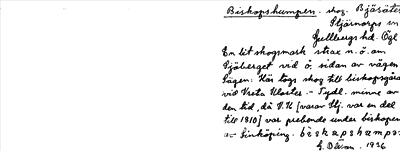 Biskopshumpen. skog. Bjäsäter
Stjärnorps sn
Gullbergs hd. Ögl
En bit skogsmark strax n. ö. om
Sjöberget vid ö. sidan av vägen
Sägen: Här togs skog till biskopsgård
vid Vreta Kloster. - Tydl. minne av
den tid, då V. K [varav Stj. var en del
till 1810] var prebende under biskopen
av Linköping. biskapshampa
1936